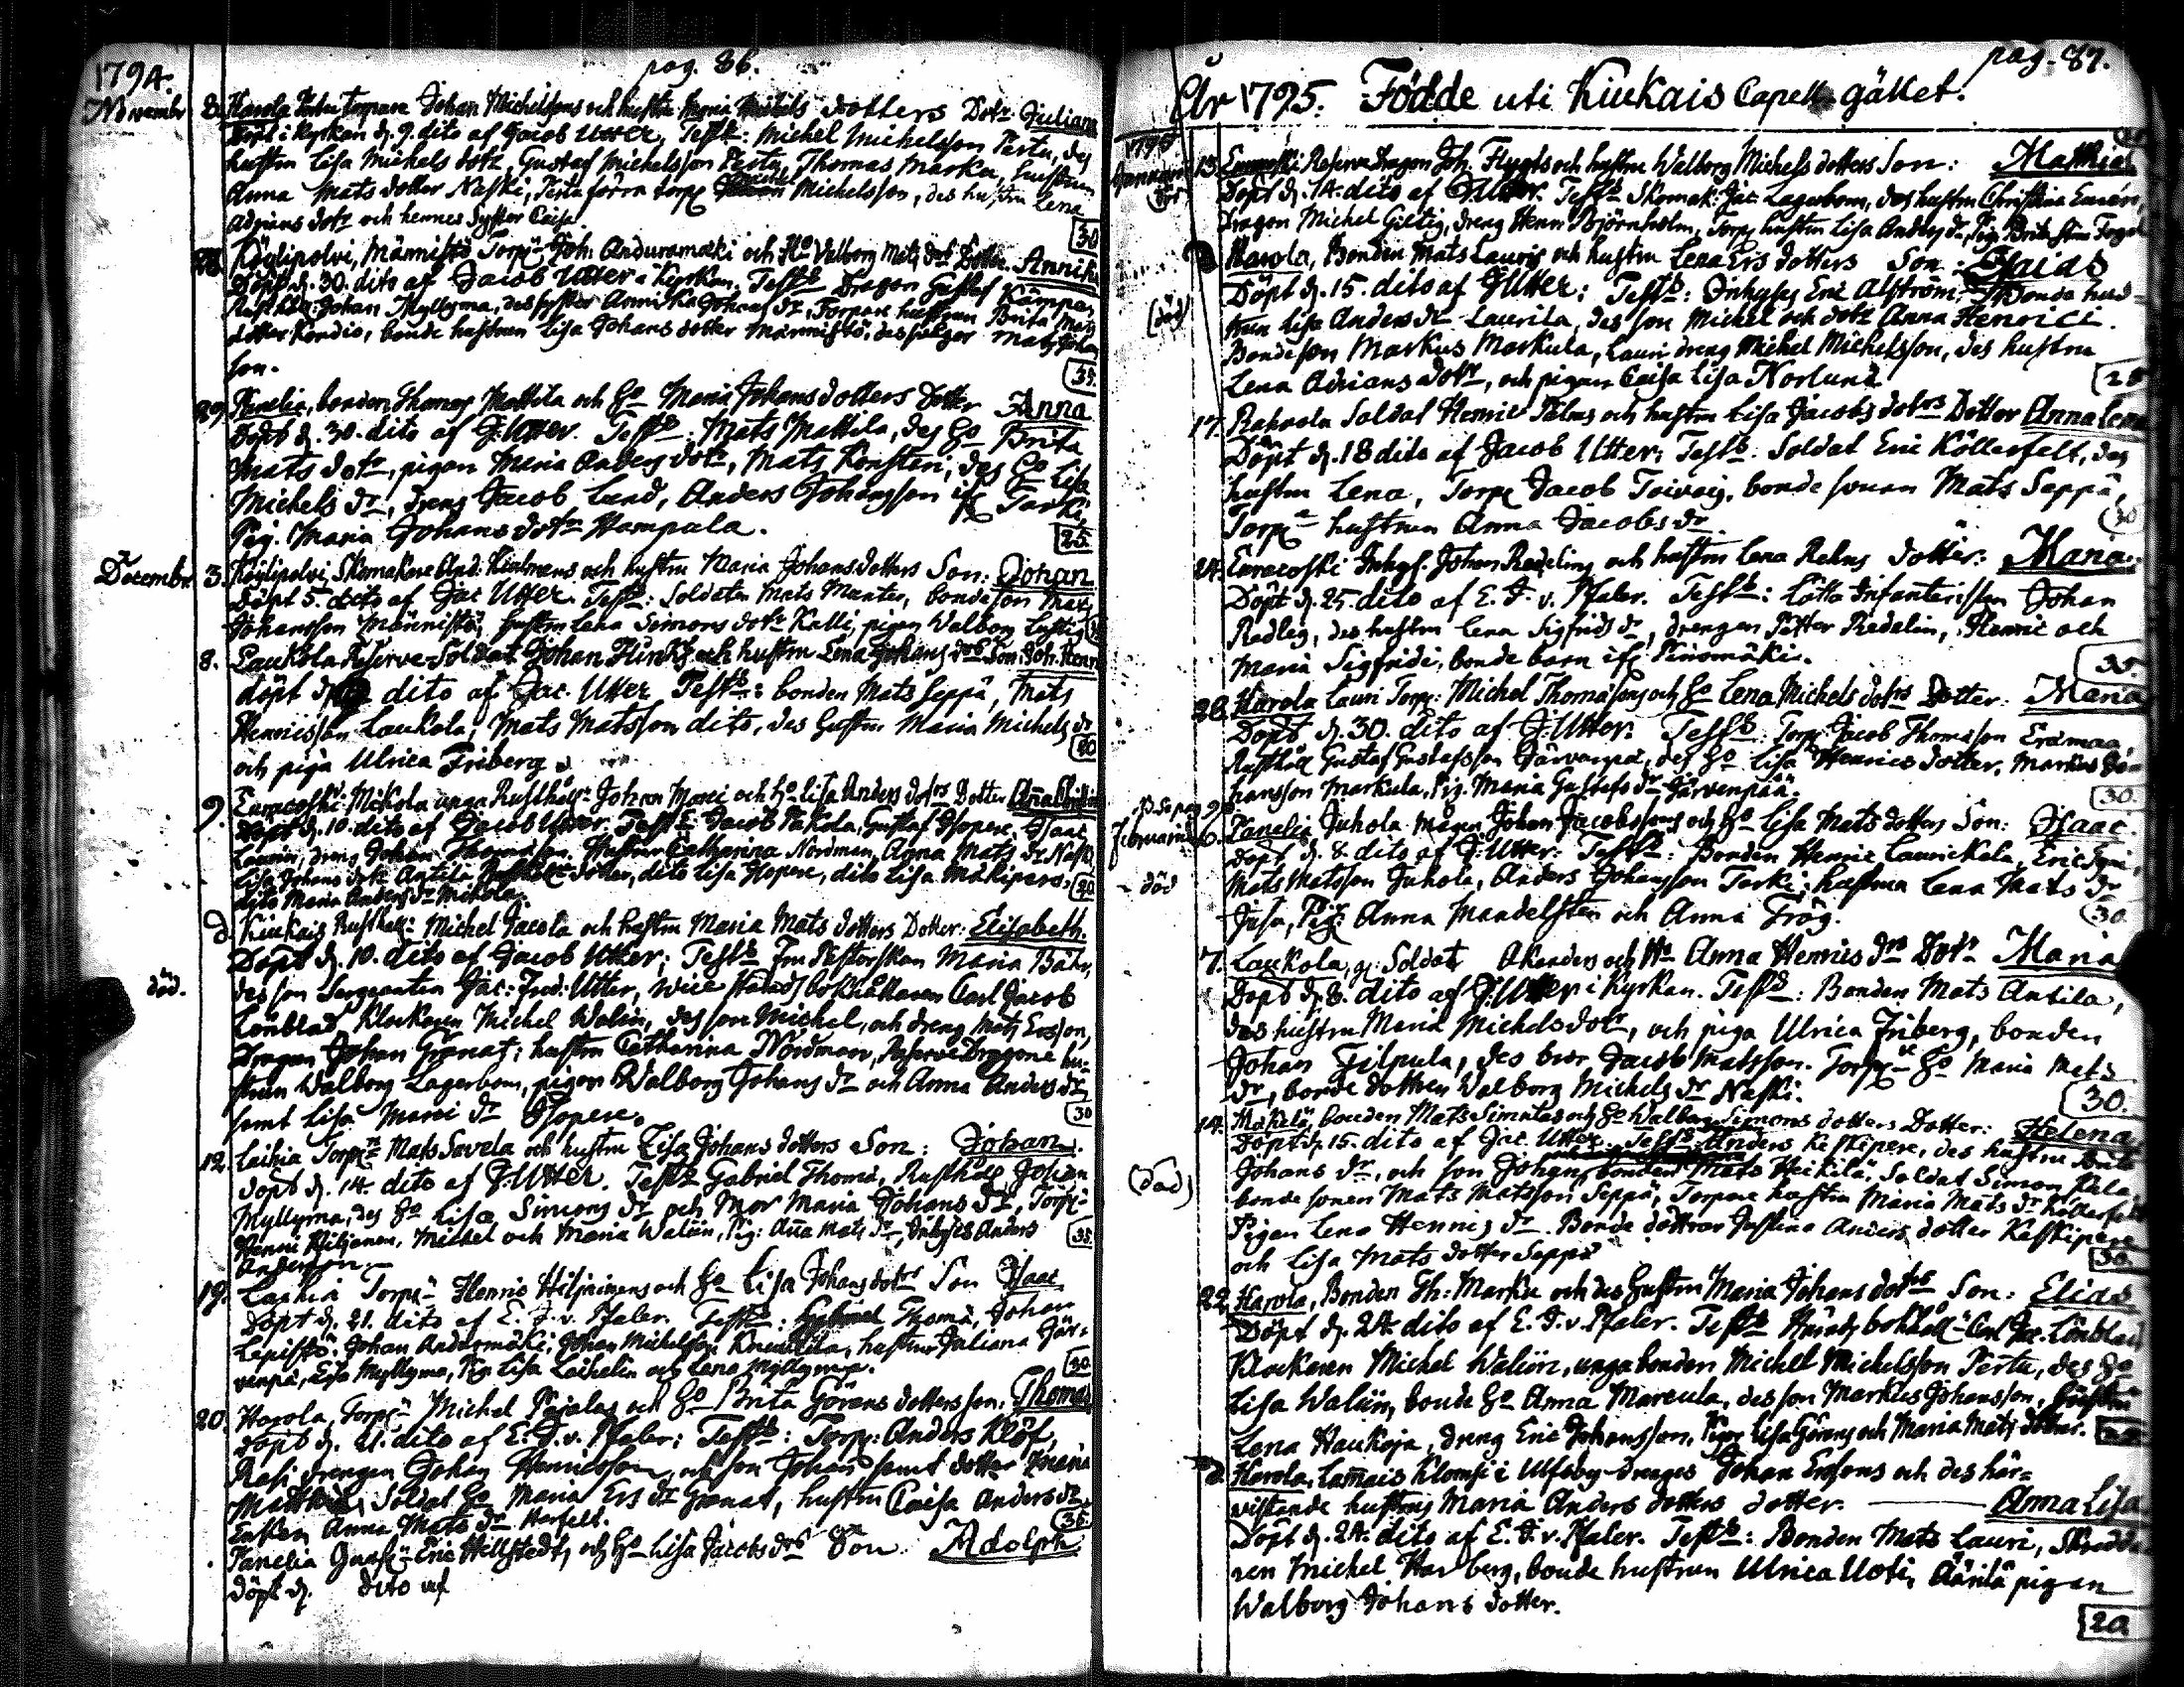 1794.
pag. 86.
Novembr 8. Harola Johan Michelssons och hustru Maria Michels dotters Dotr. Juliana
Döpt i kyrkan d. 9. dito af Jacob Utter, Test: Michel Michelsson Pertu, des
hustru Lisa Michels dotr, Gustaf Michelsson Pertu, Thomas Marku, hustrun
Anna Mats dotter Naski, Michelsson, des hustru Lena
Adrians dotr och hennes syster Caisa. 30
28. Köylipolvi, Männistö Torp. Joh. Anduramäki och Ho Valborg Mats dotr Dotter Annika
Döpt d. 30. dito af Jacob Utter i kyrkan. Test: Dragon Gustaf Kämpen
Rusthåll: Johan Myllyma, des syster Annika Johans dr, Torpare hustrun Brita Mats
dotter Kondio, bonde hustrun Lisa Johans dotter Männistö, des Mats Johans
son. 35.
29. Panelia, bonden Thomas Mattila och Ho Maria Johans dotters Dotter Anna
Döpt d. 30. dito af J. Utter. Test: Mats Mattila, des Ho Brita
Mats dotr, pigan Maria Anders dotr, Mats Konsten, des Ho Lisa
Michels dr, dreng Jacob Lund, Anders Johansson ifr Tarki,
Pig. Maria Johans dotr Hampula. 25.
Decembr. 3. Köylipolvi, Skomakare And: Hinlmans och hustru Maria Johans dotters Son: Johan
Döpt 5. dito af Jac Utter. Test: Soldaten Mats Manter, bondeson Mats
Johansson Männistö, hustru Lena Simons dotr Kalli, pigan Walborg
8. Laukola Reserve-Soldat Johan Flinks och hustru Lena Johans dotrs Son. Joh. Henr
döpt d. dito af Jac. Utter Test: bonden Mats Seppä, Mats
Henricsson Laukola, Mats Matsson dito, des hustru Maria Michels dr
och piga Ulrica Friberg. 30
9. Euracoski Mikola unga Rusthåll: Johan Marci och Ho Lisa Anders dotrs Dotter Anna Christina
Döpt d. 10. dito af Jacob Utter. Test: Jacob Pakola, Gustaf Isopere, Isaac
Laurin, dreng Johan Thomasson. Hustrun Catharina Nordman, Anna Mats dr Naski
Lisa Johans dotr Antila dotter, dito Lisa Isopere, dito Lisa Mäkipere, 30
dito Maria Anders dr Mikola.
d. Kiukais Rusthåll: Michel Jacola och hustru Maria Mats dotters Dotter: Elisabeth.
Döpt d. 10. dito af Jacob Utter; Test: Fru Pastorskan Maria Bähr,
död.
des son Sergeanten Jac: Fred: Utter, wice Härads bokhållaren Carl Jacob
Lönblad, Klockaren Michel Walin, des son Michel, och dreng Mats Ersson,
Dragon Johan Granat; hustrun Catharina Nordman, Reserve Dragons hu-
strun Walborg Lagerbom, pigan Walborg Johans dr och Anna Anders dr,
samt Lisa Marci dr Isopere. 30
12. Laihia Torp. Mats Savela och hustru Lisa Johans dotters Son: Johan.
döpt d. 14. dito af J. Utter. Test: Gabriel Thoma, Rusthåll Johan
Myllyma, des Ho Lisa Simons dr och Mor Maria Johans dr, Torp.
Henric Hiljanen, Michel och Maria Walin, Pig: Ana Mats dr, Inhyses Anders
Andersson. 35
19. Laihia Torp. Henric Hiljainens och Ho Lisa Johans dotrs Son Isaac
Döpt d. 21. dito af E. J. v. Pfaler. Test: Gabriel Thoma, Johan
Lepistö, Johan Andurmäki, Johan Michelsson, hustru Juliana Jär-
venpä, Lisa Myllyma, Pig. Lisa Laihelin och Lena Myllyma. 30
20. Harola, Torp. Michel Pajalas och Ho Brita Görans dotters son: Thomas
döpt d. 21. dito af E. J. v. Pfaler; Test: Torp: Anders Klöf,
Rasi drengen Johan Henricsson, och son Johan samt dotter Maria
Soldat Ho Maria Ers dr Granat, hustru Caisa Anders dr
Enken Anna Mats dr Harfelt. 36
Panelia Eric Hellstedt och Ho Lisa Jacobs drs Son Adolph
döpt d. dito af
pag. 87.
År 1795. Födde uti Kiukais Capell gället.
1795
Januarii 13. Euracoski Reserve Dragon Joh. Flygts och hustru Walborg Michels dotters Son: Matthias
Döpt d. 14. dito af J. Utter. Test: Skomak: Jac. Lagerbom, des hustru Christina
Dragon Michel Giltig, dreng Henr. Björnholm, Torp. hustru Lisa Anders dr, Pig.
d. Harola, Bonden Mats Lauris och hustru Lena Ers dotters Son: Esaias
(död)
Döpt d. 15. dito af J Utter; Test: Inhyses Eric Alström, Bonde hu-
strun Lisa Anders dr Laurila, des son Michel och dotr Anna Henrici.
Bondeson Markus Markula, Lauri dreng Michel Michelsson, des hustru
Lena Adrians dotr, och pigan Caisa Lisa Norlund 28
17. Rahvola Soldat Henric Palms och hustru Lisa Jacobs dotrs Dotter Anna Lena
Döpt d. 18 dito af Jacob Utter; Test: Soldat Eric Köllerfelt, des
hustru Lena, Torp. Jacob Toivois, bonde sonen Mats Seppä,
Torp. hustrun Anna Jacobs dr. 30
24. Euracoski Inhys. Johan Redeling och hustru Lena Rehns dotter: Maria.
Döpt d. 25. dito af E. J. v. Pfaler. Test: Lätta Infanteristen Johan
Radlig, des hustru Lena Sigfrids dr, drengen Petter Redelin, Henric och
Maria Sigfridi, bonde barn ifr Kinomäki. 35.
28. Harola Lauri Torp: Michel Thomassons och Ho Lena Michels dotrs Dotter: Maria
Döpt d. 30. dito af J. Utter. Test: Torp. Jacob Thomasson Erämaa,
Rusthåll Gustaf Gustafsson Järvenpä, des Ho Lisa Henrics dotter, Markus Jo-
hansson Markula, Pig. Maria Gustafs dr Järvenpää. 30.
Februarii 6. Panelia Juhola mågen Johan Jacobssons och Ho Lisa Mats dotters Son: Isaac.
döpt d. 8. dito af J. Utter: Test: Bonden Henric Laurickala, Eric
- död
Mats Matsson Juhola, Anders Johansson Tarki; hustrun Lena Mats dr
Pig: Anna Mandelsten och Anna Frög. 30
7. Laukola, Soldat Akanders och Ho Anna Henrics drs Dotr Maria
Döpt d. 8. dito af J. Utter i kyrkan. Test: Bonden Mats Antila,
des hustru Maria Michels dotr, och piga Ulrica Friberg, bonden
Johan Filpula, des bror Jacob Matsson. Torp. Ho Maria Mats
dr, bonde dottren Walborg Michels dr Naski. 30.
14. Mäkelä, bonden Mats Simulas och Ho Walborg Simons dotters Dotter: Helena
Döpt d. 15. dito af Jac. Utter. Test: Anders Keskipere, des hustru Brita
(död)
Johans dr, och son Johan, bonden Mats Heikilä, Soldat Simon
bonde sonen Mats Matsson Seppä, Torpare hustru Maria Mats dr Köllerfelt
Pigan Lena Henrics dr. Bonde döttrar Justina Anders dotter Keskipere
och Lisa Mats dotter Seppä 30.
22. Harola, Bonden Th: Marku och des hustru Maria Johans dotrs Son: Elias
Döpt d. 24. dito af E. J. v. Pfaler. Test: Härads bokhåll. Carl Jac. Lönblad
Klockaren Michel Walin, unga bonden Michel Michelsson Pertu, des Ho
Lisa Walin, bonde Ho Anna Marcula, des son Markus Johansson,
Lena Haukoja, dreng Eric Johansson, Pigor Lisa Görans och Maria Mats dotter.
d. Harola, Lamais Klomsi i Ulfsby drenges Johan Erssons och des här-
vistande hustrus Maria Anders dotters dotter. Anna Lisa
Döpt d. 24. dito af E. J. v. Pfaler. Test: Bonden Mats Lauri, Skredda-
ren Michel Harberg, bonde hustrun Ulrica Uoti, Äärilä pigan
Walborg Johans dotter. 20